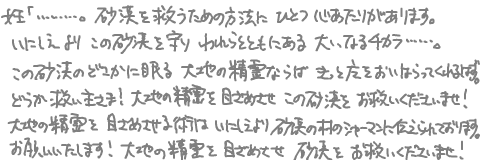 姫「………。砂漠を救うための方法に ひとつ心あたりがあります。
いにしえより この砂漠を守り われらとともにある 大いなる力が……。
この砂漠のどこかに眠る 大地の精霊ならば きっと厄をおいはらってくれるはず。
どうか救い主さま! 大地の精霊を目ざめさせ この砂漠を お救いくださいませ!
大地の精霊を 目ざめさせる術は いにしえより 砂漠の村のシャーマンに伝えられております。
お願いいたします! 大地の精霊を 目ざめさせ 砂漠を お救いくださいませ!